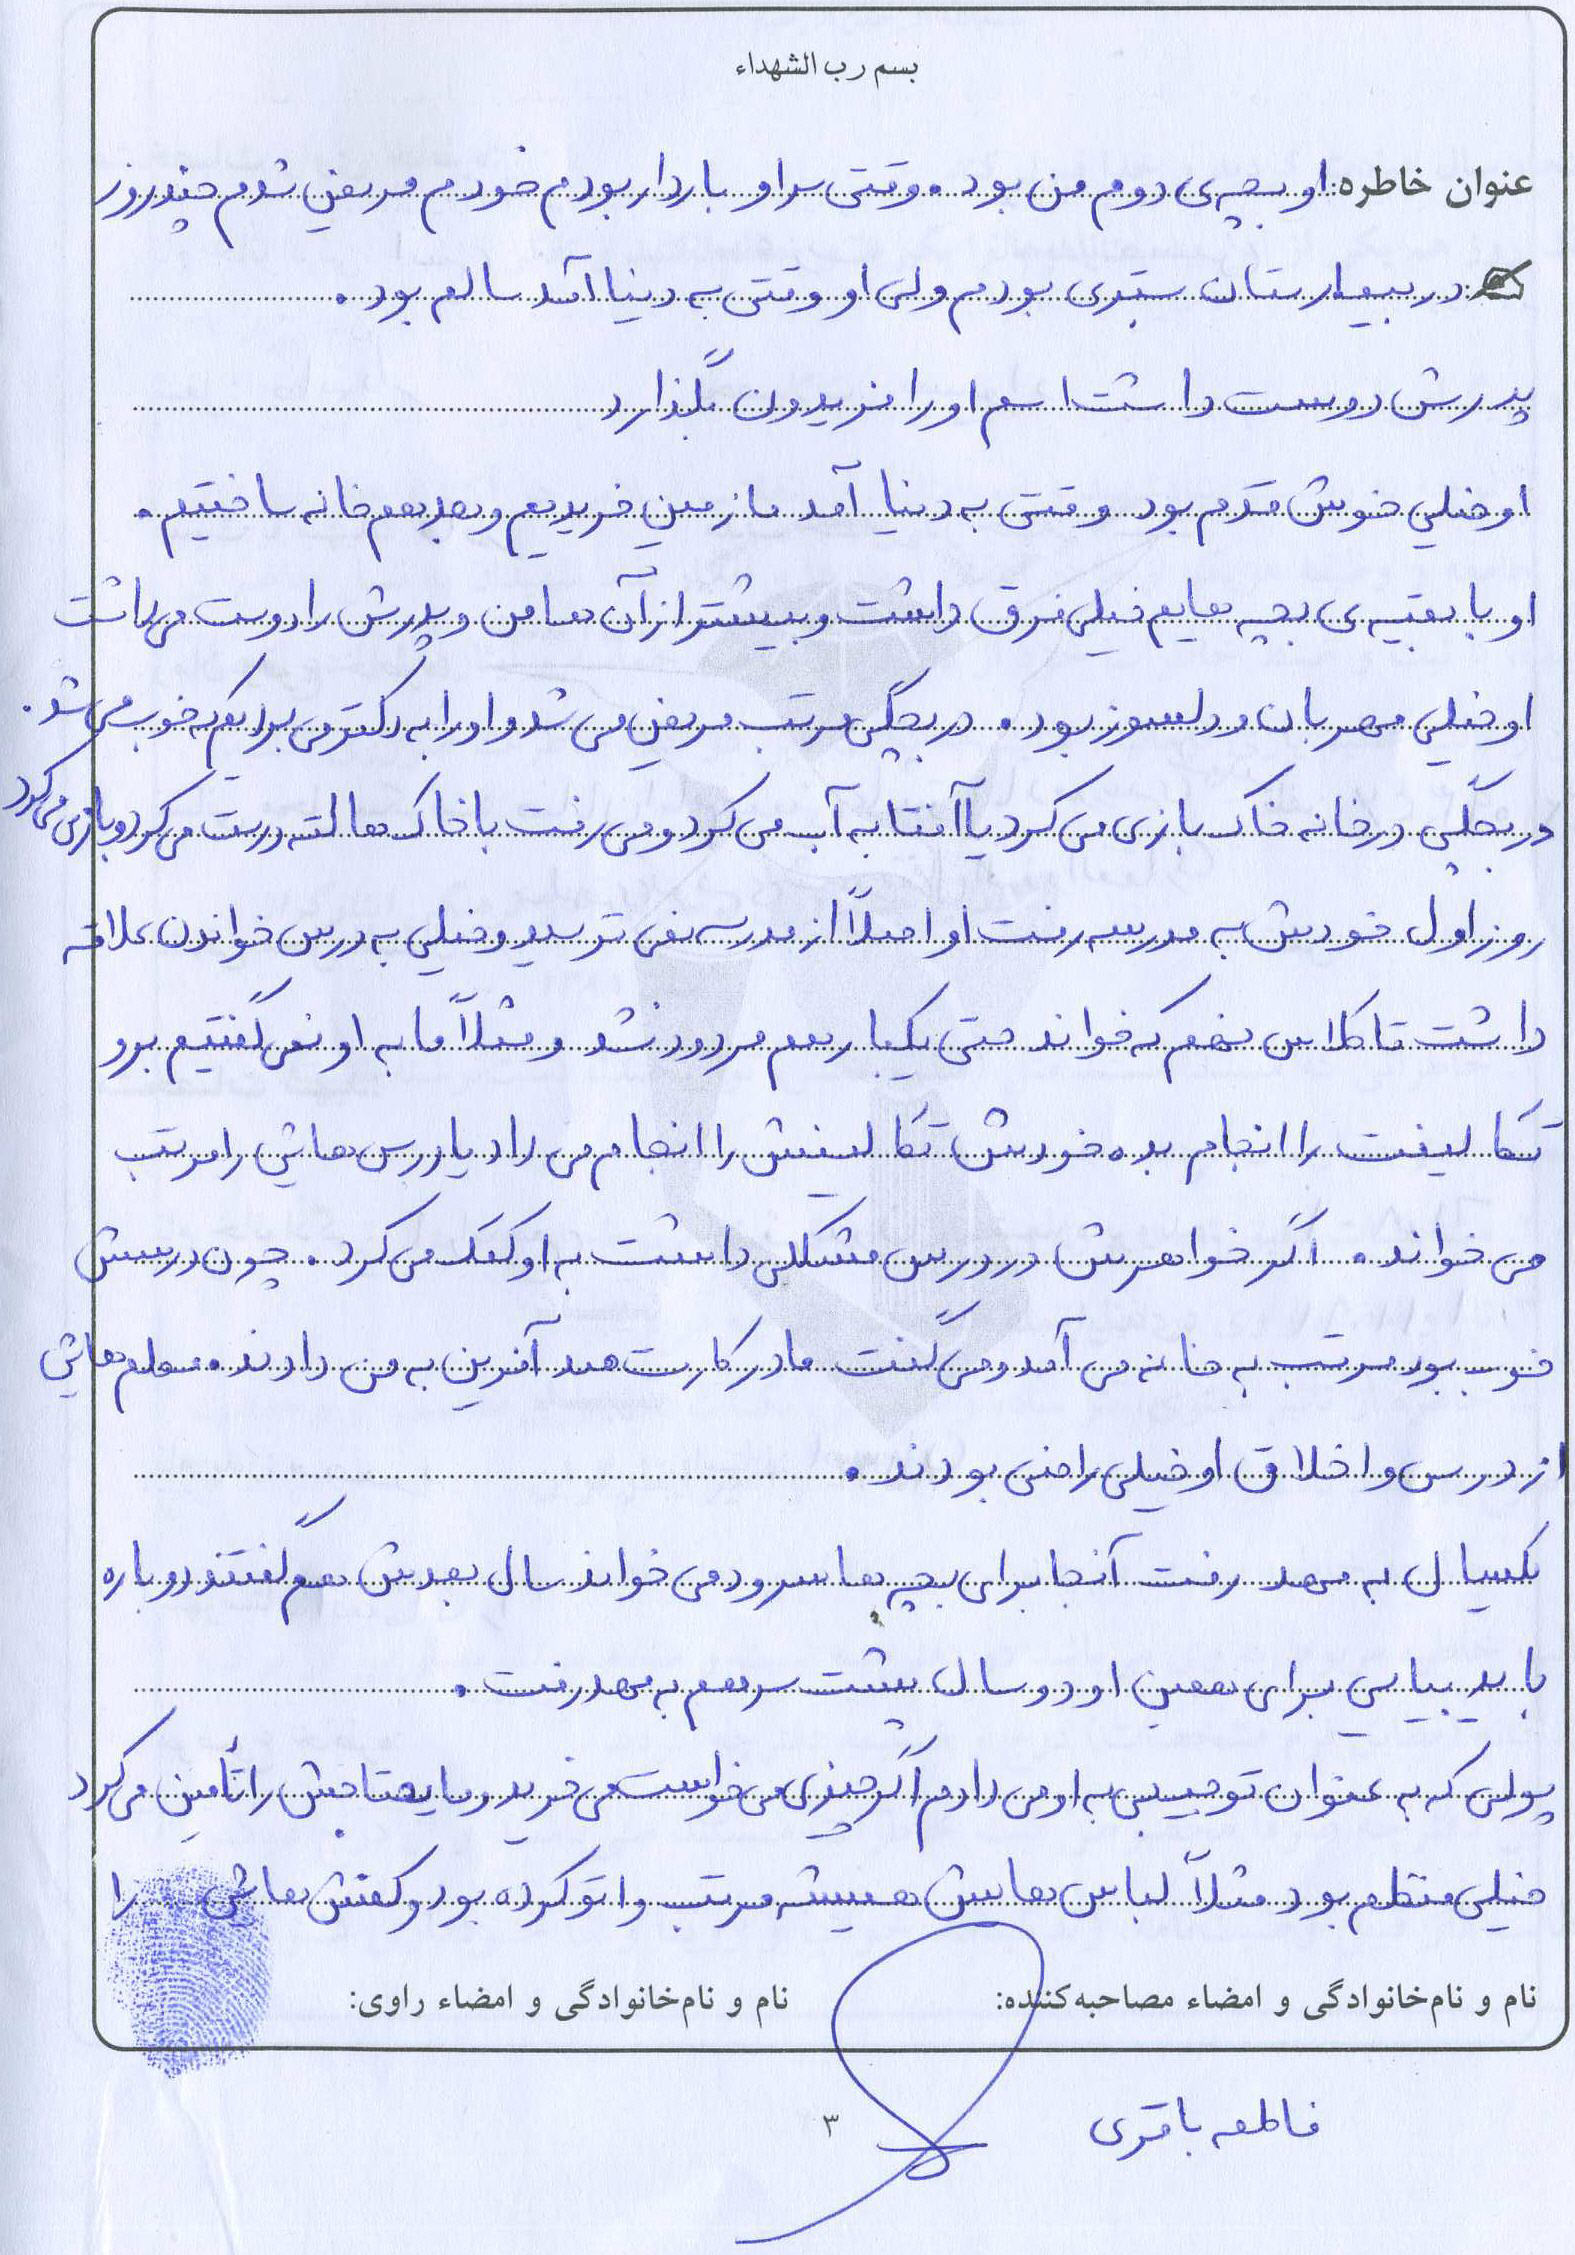 بسم رب الشهداء
عنوان خاطره: او بچه‌ی دوم من بود. وقتی سر او باردار بودم خودم مریض شدم چند روز
در بیمارستان بستری بودم ولی او وقتی به دنیا آمد سالم بود.
پدرش دوست داشت اسم او را فریدون بگذارد
او خیلی خوش قدم بود وقتی به دنیا آمد ما زمین خریدیم و بعد هم خانه ساختیم.
او با بقیه‌ی بچه هایم خیلی فرق داشت و بیشتر از آن ها من و پدرش را دوست می داشت
او خیلی مهربان و دلسوز بود. در بچگی مرتب مریض می شد و او را به دکتر می بردیم که خوب می شد.
در بچگی در خانه خاک بازی می کرد یا آفتابه آب می کرد و می رفت با خاک ها لته درست می کرد و بازی می کرد
روز اول خودش به مدرسه رفت او اصلاً از مدرسه نمی ترسید و خیلی به درس خواندن علاقه
داشت تا کلاس نهم که خواند حتی یکبار هم مردود نشد و مثلاً ما به او نمی گفتیم برو
تکالیفت را انجام بده خودش تکالیفش را انجام می داد یا درس هایش را مرتب
می خواند. اگر خواهرش در درس مشکلی داشت به او کمک می کرد. چون درسش
خوب بود مرتب به خانه می آمد و می گفت مادر کارت صد آفرین به من دادند. معلم هایش
از درس و اخلاق او خیلی راضی بودند.
یکسال به مهد رفت آنجا برای بچه ها سرود می خواند سال بعدش هم گفتند دوباره
باید بیایی برای همین او دو سال پشت سر هم به مهد رفت.
پولی که به عنوان توجیبی به او می دادم اگر چیزی می خواست می خرید و مایحتاجش را تأمین می کرد
خیلی منظم بود مثلاً لباس هایش همیشه مرتب و اتو کرده بود و کفش هایش را
نام و نام‌خانوادگی و امضاء مصاحبه‌کننده: نام و نام‌خانوادگی و امضاء راوی:
فاطمه باقری
۳